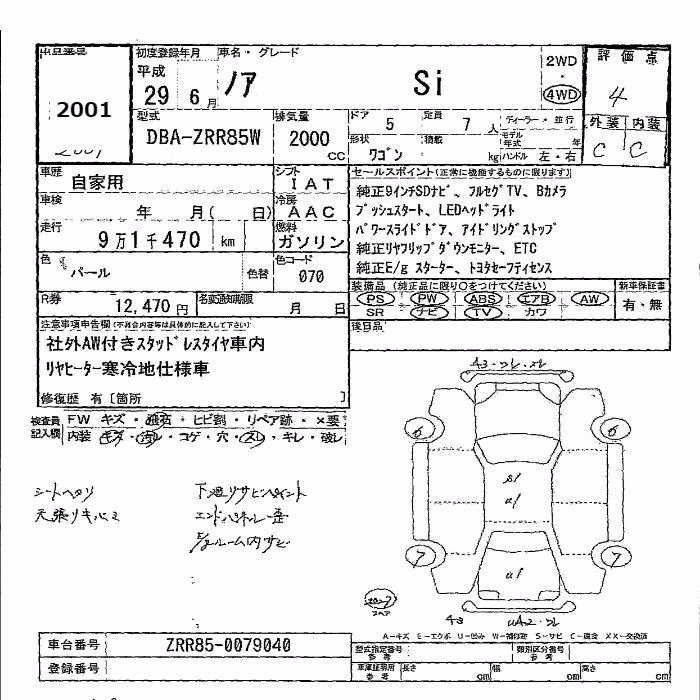 出品番号
2001
初度登録年月
平成
29 6月
車名・グレード
ノア Si
2WD
・
4WD
評価点
4
外装 内装
C C
型式
DBA-ZRR85W
排気量
2000
CC
ドア 5 定員 7人
形状 ワゴン 積載 kg
ディーラー・並行
モデル年式 年
ハンドル 左・右
車歴 自家用
シフト IAT
車検 年 月( 日)
冷房 AAC
走行 9万1千470 km
燃料 ガソリン
色 パール 色替
色コード 070
R券 12,470円
名変通知期限 月 日
セールスポイント(正常に機能するものに限ります)
純正9インチSDナビ、フルセグTV、Bカメラ
プッシュスタート、LEDヘッドライト
パワースライドドア、アイドリングストップ
純正リヤフリップダウンモニター、ETC
純正E/gスターター、トヨタセーフティセンス
装備品(純正品に限り○をつけてください)
新車保証書
PS PW ABS エアB AW
SR ナビ TV カワ
有・無
後日品
注意事項申告欄(不具合内容等は具体的に記入して下さい)
社外AW付きスタッドレスタイヤ車内
リヤヒーター寒冷地仕様車
修復歴 有[箇所 ]
検査員記入欄
FW キズ・飛石・ヒビ割・リペア跡・×要
内装 キズ・汚レ・コゲ・穴・スレ・キレ・破レ
シートヘタリ
下廻りサビペイント
エンドパネル歪
A3
6 6
S1
U1
7 7
U1
スペア
A3
A-キズ E-エクボ U-凹み W-補修跡 S-サビ C-腐食 XX-交換済
車台番号 ZRR85-0079040
登録番号
型式指定番号 参考
類別区分番号 参考
車庫証明用 参考 長さ cm 幅 cm 高さ cm